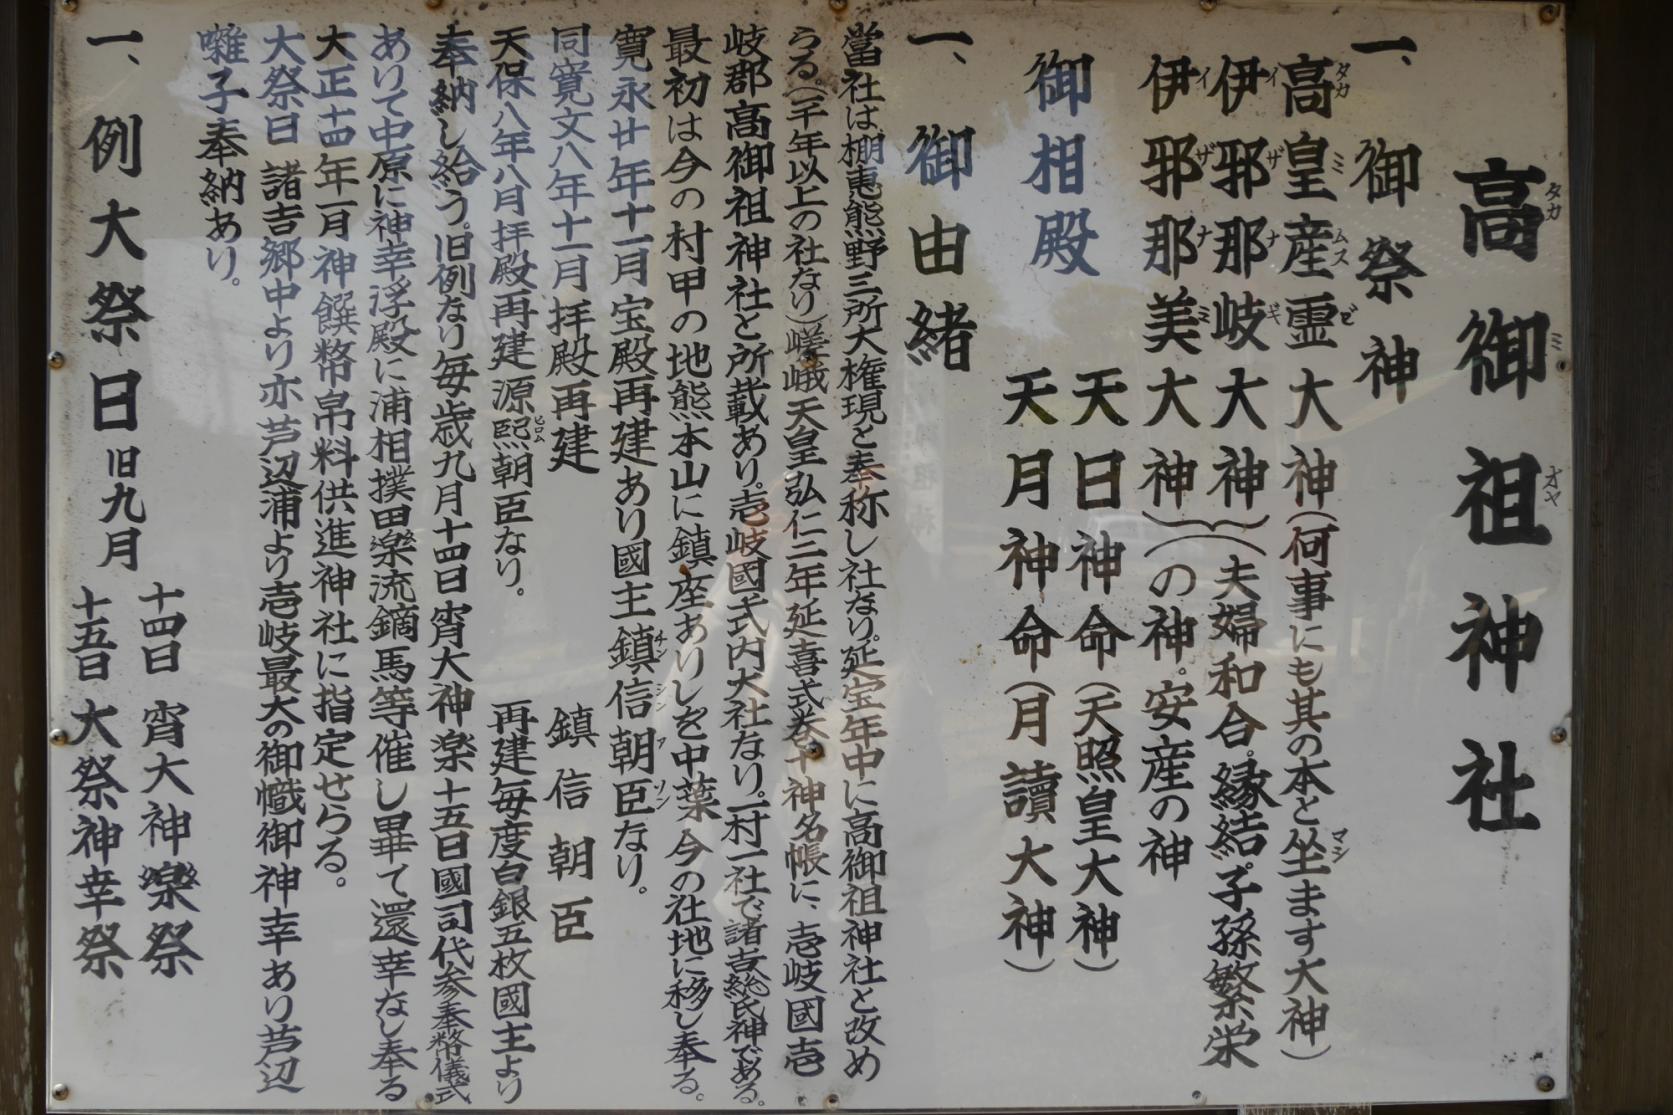 高御祖神社
一、御祭神
高皇産霊大神(何事にも其の本と坐ます大神)
伊邪那岐大神(夫婦和合。縁結。子孫繁栄
伊邪那美大神 の神。安産の神
御相殿 天日神命(天照皇大神)
天月神命(月讀大神)
一、御由緒
當社は棚恵熊野三所大権現と奉称し社なり。延宝年中に高御祖神社と改め
らる。(千年以上の社なり)嵯峨天皇弘仁二年延喜式巻十神名帳に、壱岐國壱
岐郡高御祖神社と所載あり。壱岐國式内大社なり。一村一社で諸吉総氏神である。
最初は今の村甲の地熊本山に鎮座ありしを中葉今の社地に移し奉る。
寛永廿年十一月宝殿再建あり國主鎮信朝臣なり。
同寛文八年十一月拝殿再建 鎮信朝臣
天保八年八月拝殿再建源熈朝臣なり。 再建毎度白銀五枚國主より
奉納し給う。旧例なり毎歳九月十四日宵大神楽十五日國司代参奉幣儀式
ありて中原に神幸浮殿に浦相撲田楽流鏑馬等催し畢て還幸なし奉る
大正十四年一月神饌幣帛料供進神社に指定せらる。
大祭日 諸吉郷中より亦芦辺浦より壱岐最大の御幟御神幸あり芦辺
囃子奉納あり。
一、例大祭日 旧九月 十四日 宵大神楽祭
十五日 大祭神幸祭
タカ ミ オヤ
タカ ミ ムス ビ
マシ
イ ザ ナ ギ
イ ザ ナ ミ
チン シン ア ソン
ヒロム